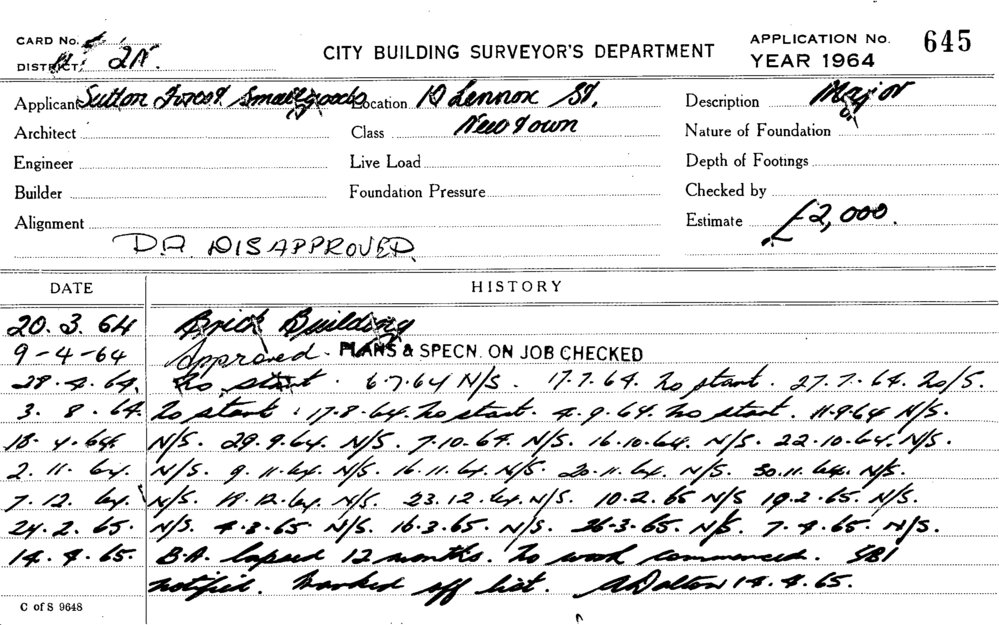 CARD No.
DISTRICT: 2N.
CITY BUILDING SURVEYOR'S DEPARTMENT
APPLICATION No. 645
YEAR 1964
Applicant Sutton Forest Smallgoods Location 10 Lennox St, Description Major
Architect Class Newtown Nature of Foundation
Engineer Live Load Depth of Footings
Builder Foundation Pressure Checked by
Alignment Estimate £2,000.
D.A. DISAPPROVED.
DATE HISTORY
20. 3. 64 Brick Building
9-4-64 Approved. PLANS & SPECN. ON JOB CHECKED
No start. 6.7.64 N/S. 17.7.64. No start. 27.7.64. No/S.
3. 8. 64. No start. 17.8.64. No start. 4.9.64. No start. 11.9.64 N/S.
N/S. 29.9.64. N/S. 7.10.64. N/S. 16.10.64. N/S. 22.10.64. N/S.
2. 11. 64. N/S. 9.11.64. N/S. 16.11.64. N/S. 20.11.64. N/S. 30.11.64. N/S.
7. 12. 64. N/S. 12.64. N/S. 23.12.64. N/S. 10.2.65 N/S 19.2.65. N/S.
24. 2. 65. N/S. 4.3.65 N/S. 16.3.65. N/S. 26.3.65. N/S. 7.4.65. N/S.
14. 4. 65. B.A. lapsed 12 months. No work commenced. SBI
notified. Marked off list. A Dalton 14.4.65.
C of S 9648